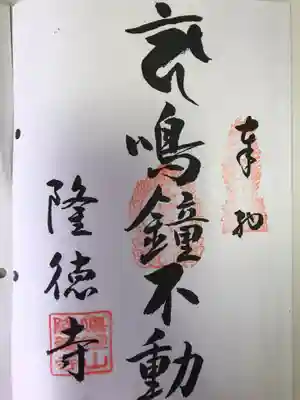 奉納
鳴鐘不動
隆徳寺